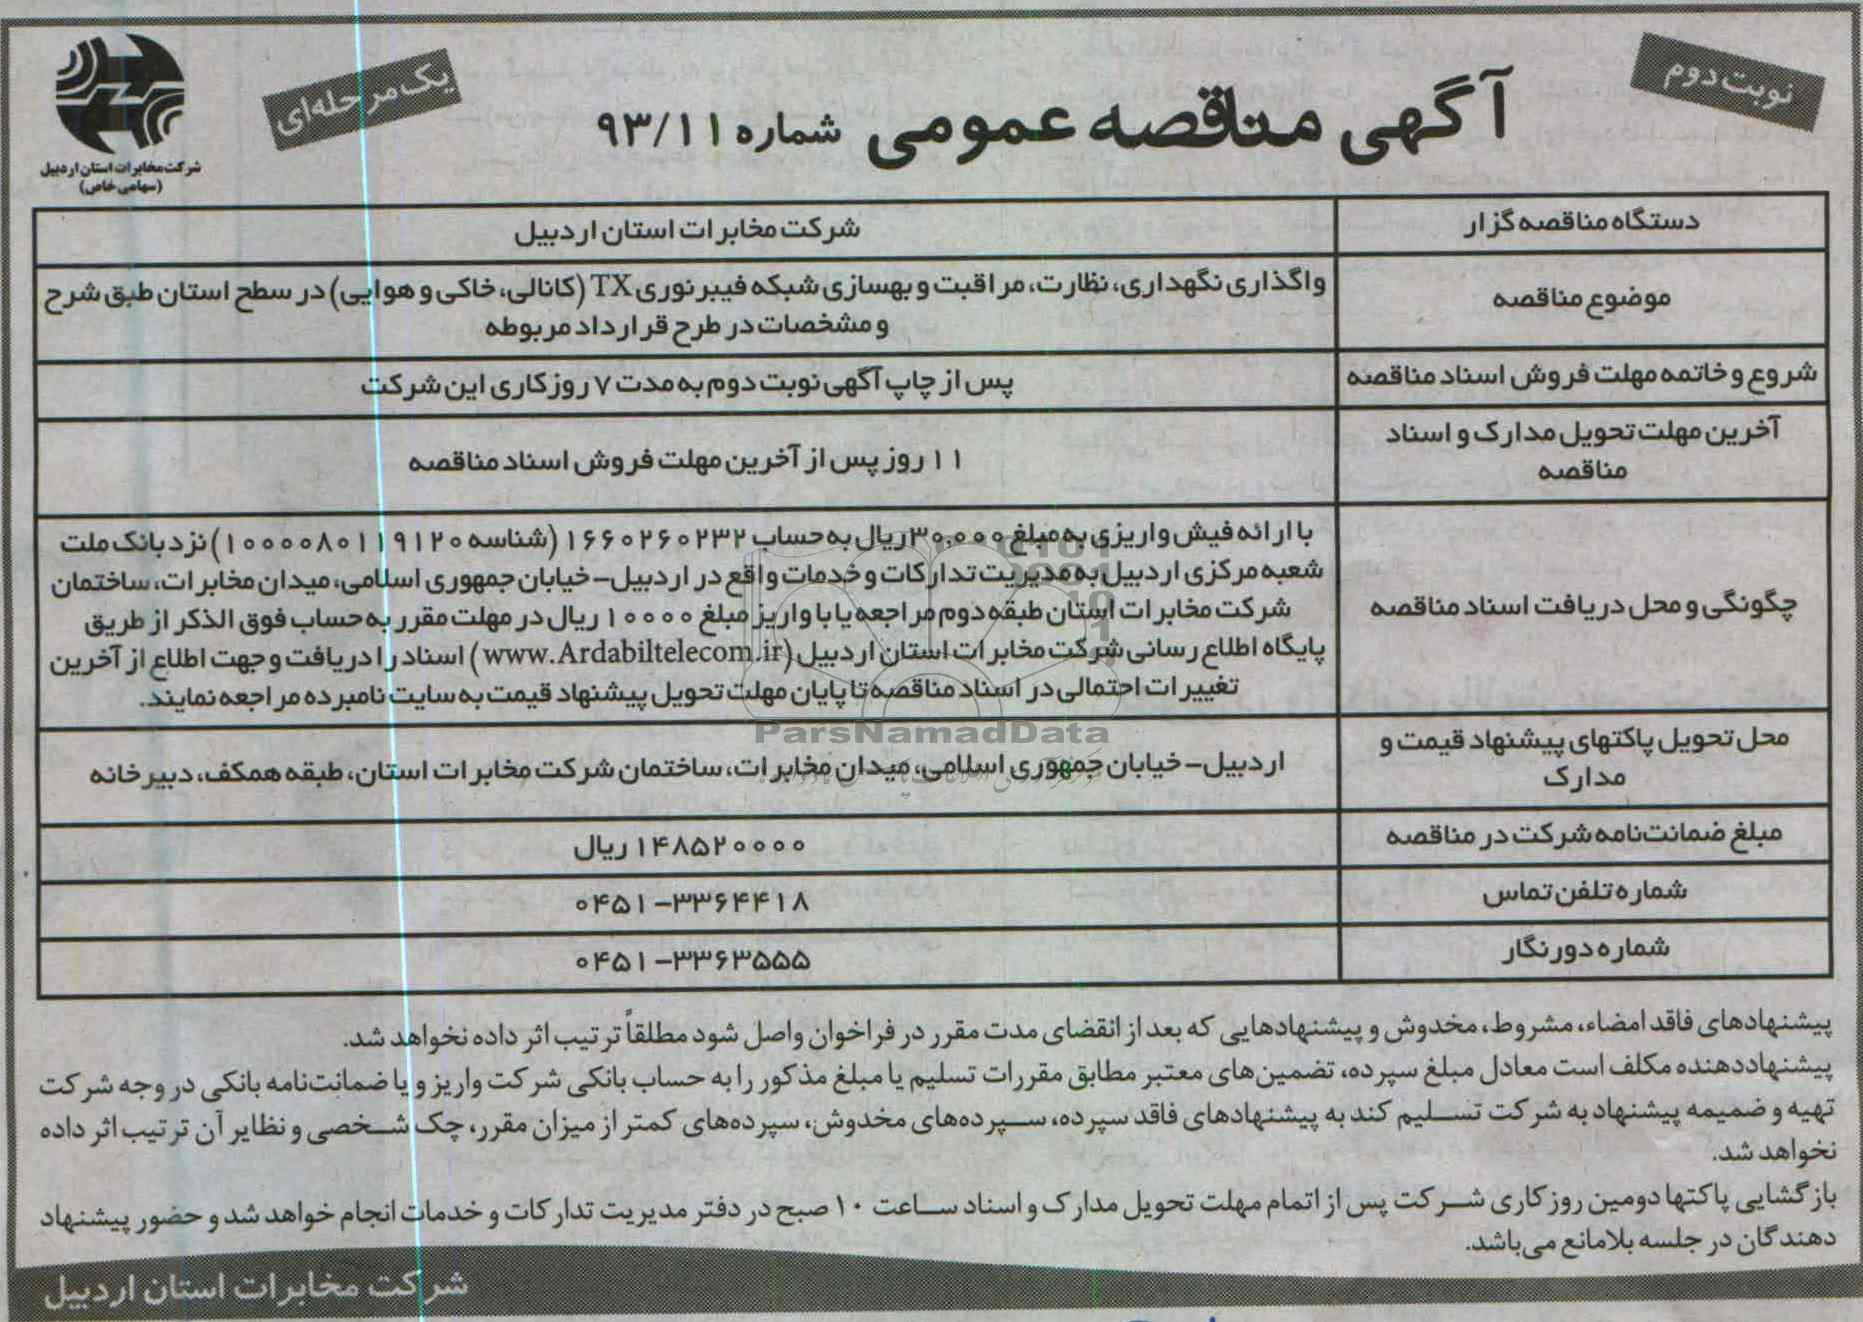 نوبت دوم
آگهی مناقصه عمومی شماره ۹۳/۱۱
یک مرحله‌ای
شرکت مخابرات استان اردبیل
(سهامی خاص)
دستگاه مناقصه گزار
شرکت مخابرات استان اردبیل
موضوع مناقصه
واگذاری نگهداری، نظارت، مراقبت و بهسازی شبکه فیبر نوری TX (کانالی، خاکی و هوایی) در سطح استان طبق شرح
و مشخصات در طرح قرارداد مربوطه
شروع و خاتمه مهلت فروش اسناد مناقصه
پس از چاپ آگهی نوبت دوم به مدت ۷ روز کاری این شرکت
آخرین مهلت تحویل مدارک و اسناد
مناقصه
۱۱ روز پس از آخرین مهلت فروش اسناد مناقصه
چگونگی و محل دریافت اسناد مناقصه
با ارائه فیش واریزی به مبلغ ۳۰,۰۰۰ ریال به حساب ۱۶۶۰۲۶۰۲۳۲ (شناسه ۱۰۰۰۰۸۰۱۱۹۱۲۰) نزد بانک ملت
شعبه مرکزی اردبیل به مدیریت تدارکات و خدمات واقع در اردبیل- خیابان جمهوری اسلامی، میدان مخابرات، ساختمان
شرکت مخابرات استان طبقه دوم مراجعه یا با واریز مبلغ ۱۰۰۰۰ ریال در مهلت مقرر به حساب فوق الذکر از طریق
پایگاه اطلاع رسانی شرکت مخابرات استان اردبیل (www.Ardabiltelecom.ir) اسناد را دریافت و جهت اطلاع از آخرین
تغییرات احتمالی در اسناد مناقصه تا پایان مهلت تحویل پیشنهاد قیمت به سایت نامبرده مراجعه نمایند.
محل تحویل پاکتهای پیشنهاد قیمت و
مدارک
اردبیل- خیابان جمهوری اسلامی، میدان مخابرات، ساختمان شرکت مخابرات استان، طبقه همکف، دبیرخانه
مبلغ ضمانت‌نامه شرکت در مناقصه
۱۴۸۵۲۰۰۰۰ ریال
شماره تلفن تماس
۰۴۵۱-۳۳۶۴۴۱۸
شماره دورنگار
۰۴۵۱-۳۳۶۳۵۵۵
ParsNamadData
پیشنهادهای فاقد امضاء، مشروط، مخدوش و پیشنهادهایی که بعد از انقضای مدت مقرر در فراخوان واصل شود مطلقاً ترتیب اثر داده نخواهد شد.
پیشنهاددهنده مکلف است معادل مبلغ سپرده، تضمین‌های معتبر مطابق مقررات تسلیم یا مبلغ مذکور را به حساب بانکی شرکت واریز و یا ضمانت‌نامه بانکی در وجه شرکت
تهیه و ضمیمه پیشنهاد به شرکت تسلیم کند به پیشنهادهای فاقد سپرده، سپرده‌های مخدوش، سپرده‌های کمتر از میزان مقرر، چک شخصی و نظایر آن ترتیب اثر داده
نخواهد شد.
بازگشایی پاکتها دومین روز کاری شرکت پس از اتمام مهلت تحویل مدارک و اسناد ساعت ۱۰ صبح در دفتر مدیریت تدارکات و خدمات انجام خواهد شد و حضور پیشنهاد
دهندگان در جلسه بلامانع می‌باشد.
شرکت مخابرات استان اردبیل